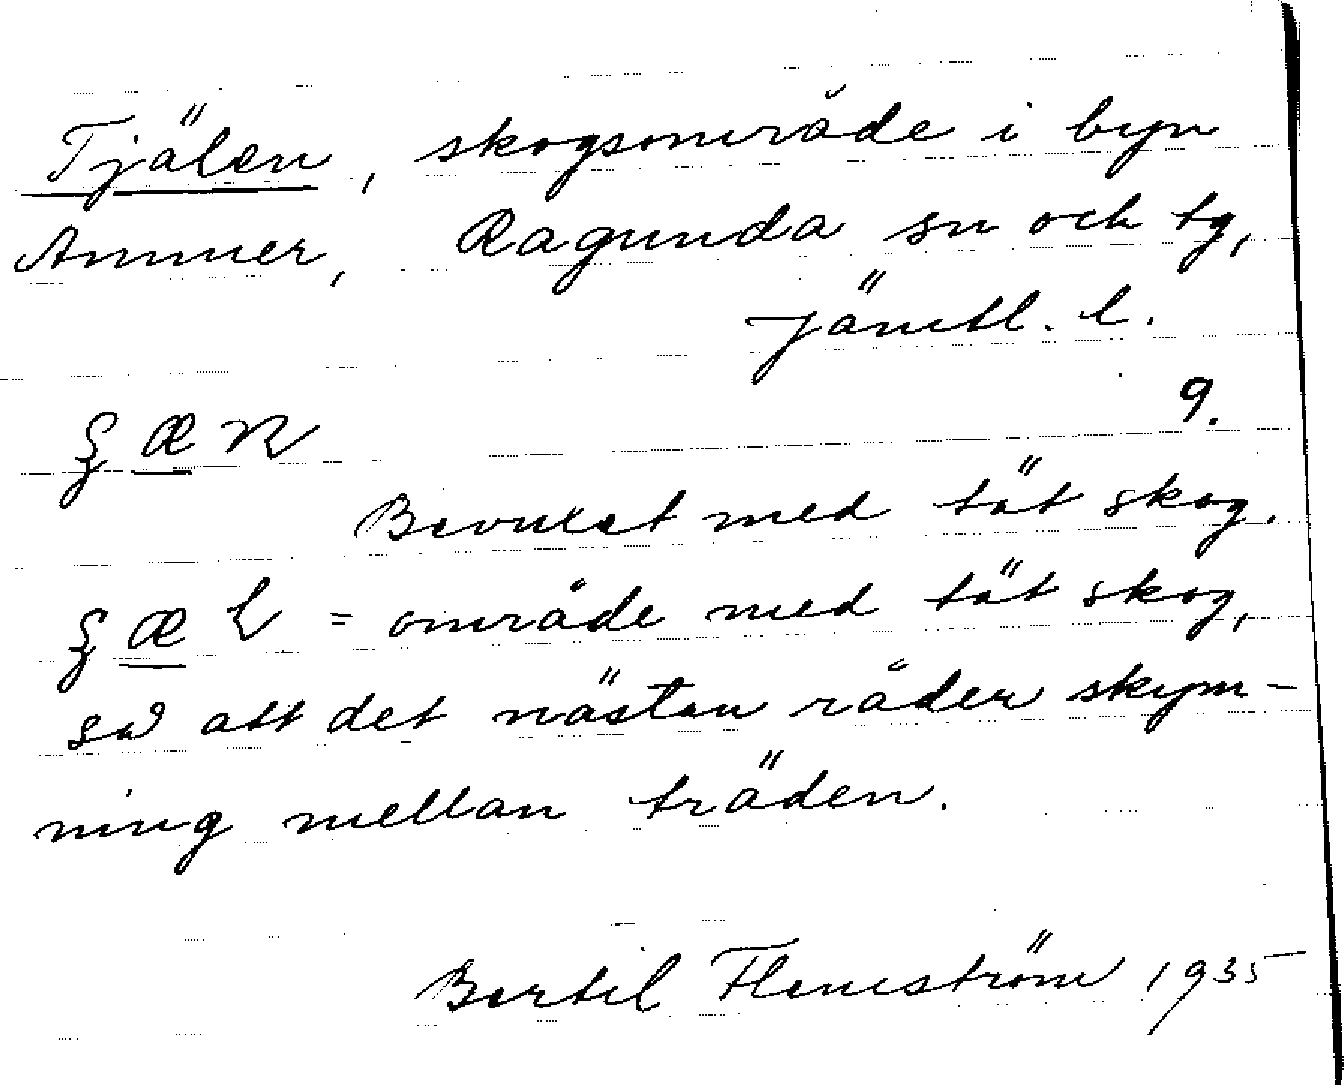 Tjälen, skogsområde i byn
Ammer, Ragunda sn och tg,
Jämtl. l.
9.
Bevuxet med tät skog.
= område med tät skog,
så att det nästan råder skym-
ning mellan träden.
Bertil Flemström 1935